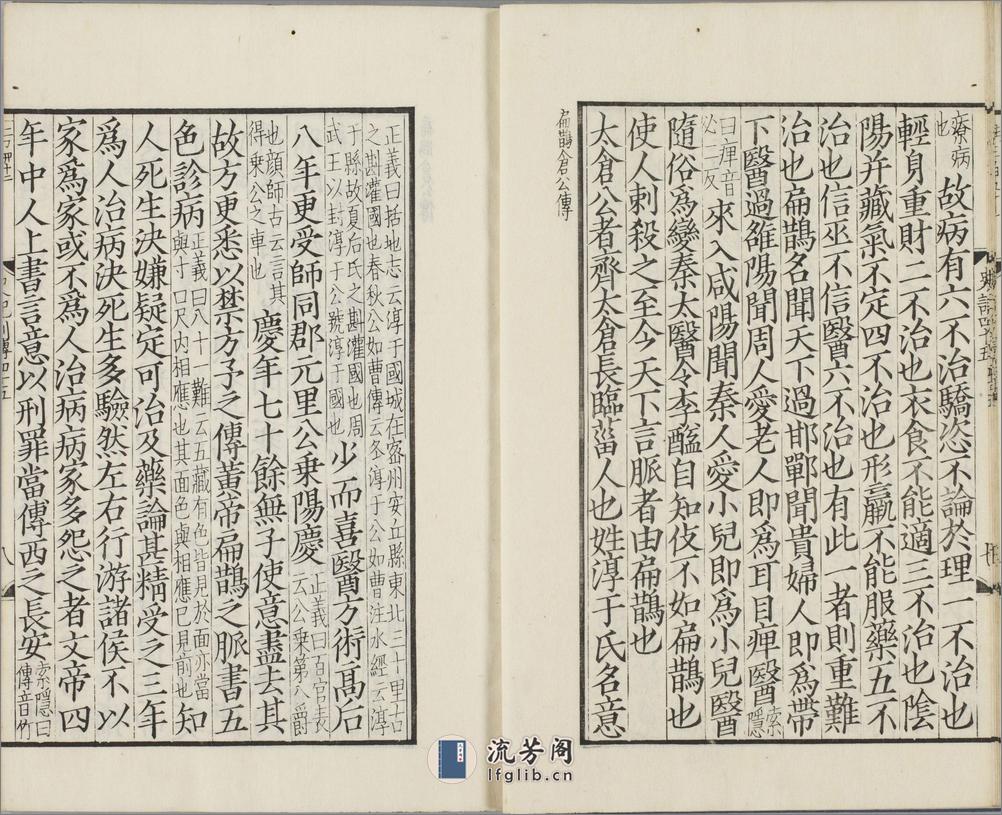 療病也故病有六不治驕恣不論於理一不治也
輕身重財二不治也衣食不能適三不治也陰
陽并藏氣不定四不治也形羸不能服藥五不
治也信巫不信醫六不治也有此一者則重難
治也扁鵲名聞天下過邯鄲聞貴婦人即爲帶
下醫過雒陽聞周人愛老人即爲耳目痺醫索隱
曰痺音必二反來入咸陽聞秦人愛小兒即爲小兒醫
隨俗爲變秦太醫令李醯自知伎不如扁鵲也
使人刺殺之至今天下言脈者由扁鵲也
太倉公者齊太倉長臨菑人也姓淳于氏名意
扁鵲倉公傳
正義曰括地志云淳于國城在密州安丘縣東北三十里古
之斟灌國也春秋公如曹傳云冬淳于公如曹注水經云淳
于縣故夏后氏之斟灌國也周
武王以封淳于公號淳于國也少而喜醫方術高后
八年更受師同郡元里公乘陽慶正義曰百官表云公乘第八爵
也顔師古云言其得乘公之車也慶年七十餘無子使意盡去其
故方更悉以禁方予之傳黃帝扁鵲之脈書五
色診病正義曰八十一難云五藏有色皆見於面亦當與寸口尺內相應也其面色與相應已見前也知
人死生決嫌疑定可治及藥論甚精受之三年
爲人治病決死生多驗然左右行游諸侯不以
家爲家或不爲人治病病家多怨之者文帝四
年中人上書言意以刑罪當傳西之長安索隱曰傳音竹
八
流芳阁
lfglib.cn